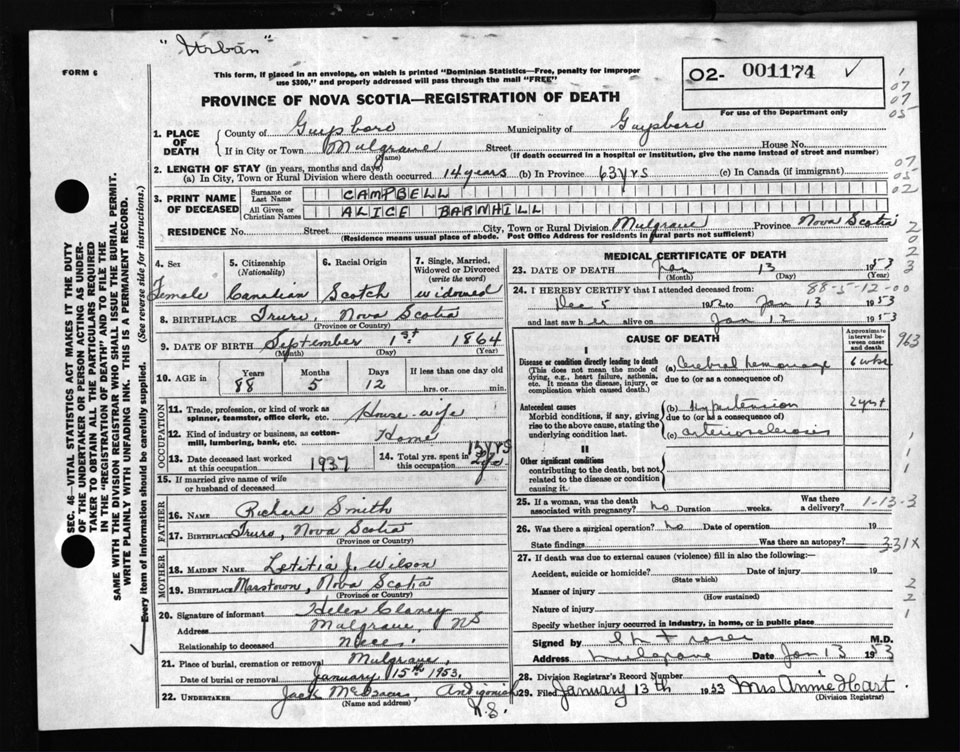 "Urban"
FORM 6
This form, if placed in an envelope, on which is printed "Dominion Statistics—Free, penalty for improper
use $300," and properly addressed will pass through the mail "FREE"
02- 001174 ✓
For use of the Department only
PROVINCE OF NOVA SCOTIA—REGISTRATION OF DEATH
1. PLACE OF DEATH
County of Guysboro Municipality of Guysboro
If in City or Town Mulgrave Street House No.
(Name) (If death occurred in a hospital or institution, give the name instead of street and number)
2. LENGTH OF STAY (in years, months and days)
(a) In City, Town or Rural Division where death occurred 14 years (b) In Province 63 yrs (c) In Canada (if immigrant)
3. PRINT NAME OF DECEASED
Surname or Last Name CAMPBELL
All Given or Christian Names ALICE BARNHILL
RESIDENCE No. Street City, Town or Rural Division Mulgrave Province Nova Scotia
(Residence means usual place of abode. Post Office Address for residents in rural parts not sufficient)
4. Sex Female
5. Citizenship (Nationality) Canadian
6. Racial Origin Scotch
7. Single, Married, Widowed or Divorced (write the word) widowed
8. BIRTHPLACE Truro, Nova Scotia
(Province or Country)
9. DATE OF BIRTH September 1st 1864
(Month) (Day) (Year)
10. AGE in Years 88 Months 5 Days 12 If less than one day old
hrs. or min.
OCCUPATION
11. Trade, profession, or kind of work as
spinner, teamster, office clerk, etc. House-wife
12. Kind of industry or business, as cotton-
mill, lumbering, bank, etc. Home
13. Date deceased last worked
at this occupation 1937
14. Total yrs. spent in
this occupation
15. If married give name of wife
or husband of deceased
FATHER
16. NAME Richard Smith
17. BIRTHPLACE Truro, Nova Scotia
(Province or Country)
MOTHER
18. MAIDEN NAME Letitia J. Wilson
19. BIRTHPLACE Nova Scotia
(Province or Country)
20. Signature of informant Helen
Address Mulgrave, NS
Relationship to deceased Niece.
21. Place of burial, cremation or removal Mulgrave,
Date of burial or removal January 15th 1953.
22. UNDERTAKER Jack Antigonish
(Name and address) N.S.
MEDICAL CERTIFICATE OF DEATH
23. DATE OF DEATH Jan 13 1953
(Month) (Day) (Year)
88-5-12-00
24. I HEREBY CERTIFY that I attended deceased from:
Dec 5 1952 to Jan 13 1953
and last saw her alive on Jan 12 1953
CAUSE OF DEATH
Approximate interval between onset and death
I
Disease or condition directly leading to death
(This does not mean the mode of
dying, e.g., heart failure, asthenia,
etc. It means the disease, injury, or
complication which caused death.)
(a) Cerebral hemorrhage 6 wks
due to (or as a consequence of)
Antecedent causes
Morbid conditions, if any, giving
rise to the above cause, stating the
underlying condition last.
(b) Hypertension 2 yrs +
due to (or as a consequence of)
(c) arteriosclerosis
II
Other significant conditions
contributing to the death, but not
related to the disease or condition
causing it.
25. If a woman, was the death
associated with pregnancy? no Duration weeks. Was there a delivery?
1-13-3
26. Was there a surgical operation? no Date of operation 19
State findings Was there an autopsy?
331X
27. If death was due to external causes (violence) fill in also the following:—
Accident, suicide or homicide? Date of injury 19
(State which)
Manner of injury
(How sustained)
Nature of injury
Specify whether injury occurred in industry, in home, or in public place
Signed by M.D.
Address Mulgrave Date Jan 13 1953
28. Division Registrar's Record Number
29. Filed January 13th 1953 Mrs Annie Hart.
(Division Registrar)
SEC. 46—VITAL STATISTICS ACT MAKES IT THE DUTY
OF THE UNDERTAKER OR PERSON ACTING AS UNDER-
TAKER TO OBTAIN ALL THE PARTICULARS REQUIRED
IN THE "REGISTRATION OF DEATH" AND TO FILE THE
SAME WITH THE DIVISION REGISTRAR WHO SHALL ISSUE THE BURIAL PERMIT.
WRITE PLAINLY WITH UNFADING INK. THIS IS A PERMANENT RECORD.
Every item of information should be carefully supplied. (See reverse side for instructions.)
1
07
07
05
07
05
02
2
0
2
2
3
963
1
1
1
2
2
1